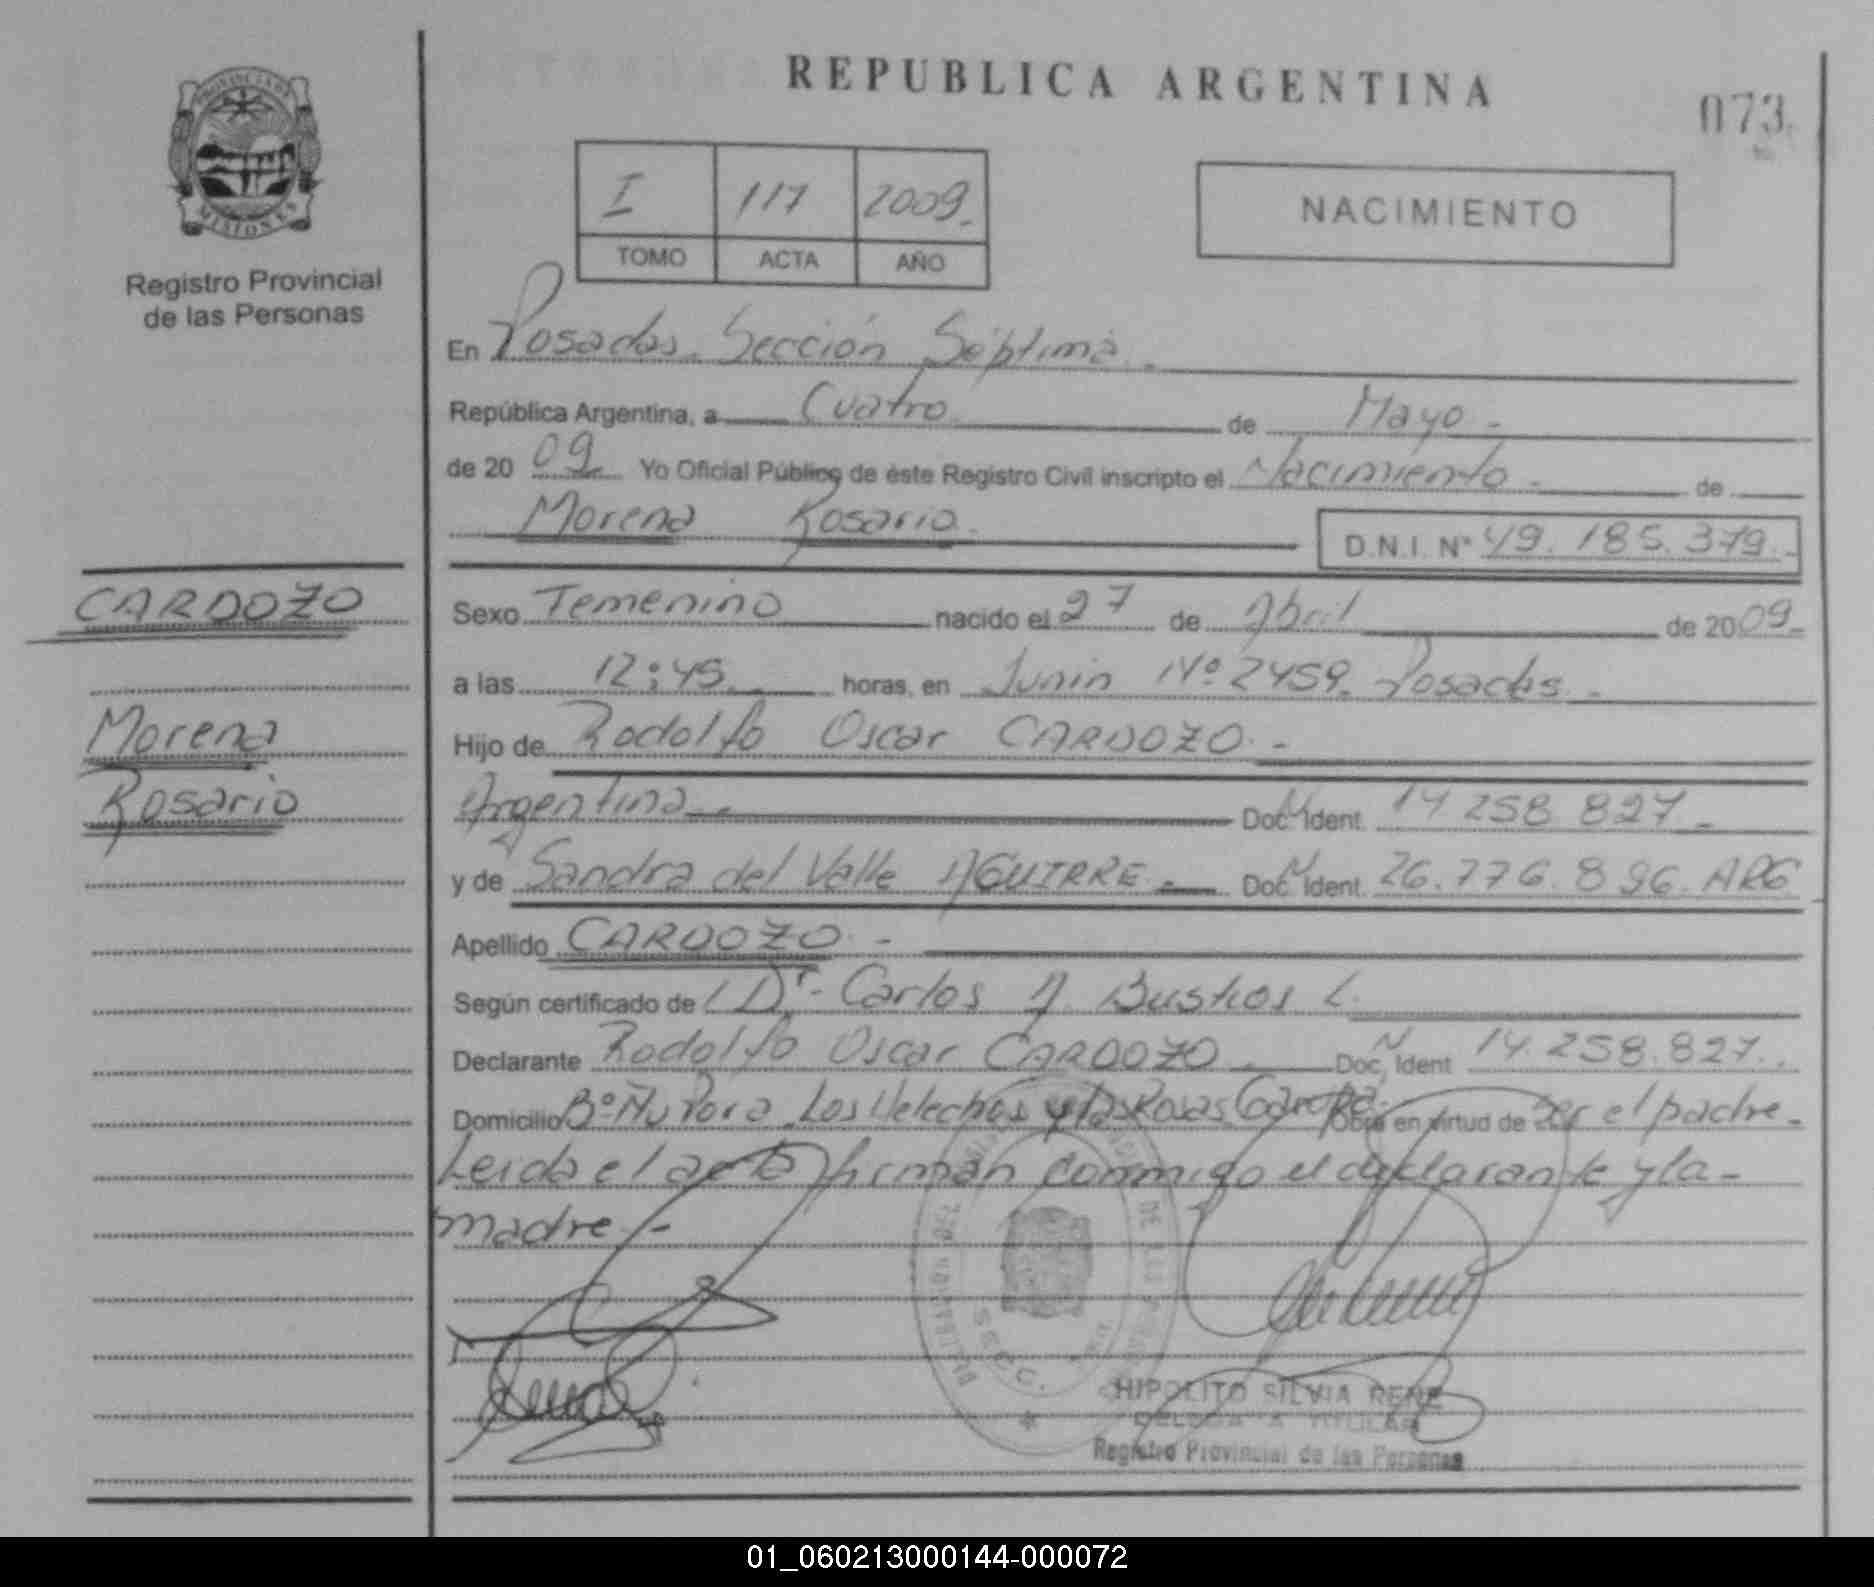 REPUBLICA ARGENTINA
073
PROVINCIA DE
MISIONES
Registro Provincial
de las Personas
I 117 2009.
TOMO ACTA AÑO
NACIMIENTO
En Posadas. Sección Séptima.-
República Argentina, a Cuatro de Mayo.-
de 20 09 Yo Oficial Público de éste Registro Civil inscripto el Nacimiento.- de
Morena Rosario. D.N.I. N° 49.185.379.-
CARDOZO
Morena
Rosario
Sexo Femenino nacido el 27 de Abril de 20 09.
a las 12:45 horas, en Junin N° 2459. Posadas.-
Hijo de Rodolfo Oscar CARDOZO.-
Argentina.- Doc. N Ident. 14.258.827.-
y de Sandra del Valle AGUIRRE.- Doc. N Ident. 26.776.896. ARG
Apellido CARDOZO.-
Según certificado de Dr. Carlos A. Bustios L.
Declarante Rodolfo Oscar CARDOZO Doc. N Ident 14.258.827.
Domicilio B° Ñu Pora. Los Helechos y las Rosas. Garupá. Obra en virtud de ser el padre.-
Leida el acta firman conmigo el declarante y la-
madre.-
HIPOLITO SILVIA RENE
TITULAR
Registro Provincial de las Personas
01_060213000144-000072